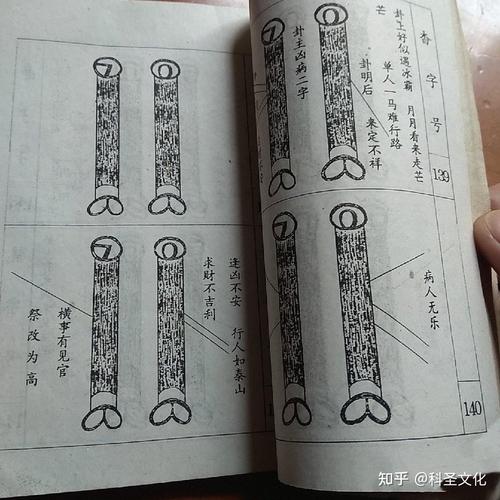 香字号
139
卦上好似遇冰霜 月月看来走芒
芒
单人一马难行路
卦明后 来定不祥
卦主凶病二字
7
0
7
0
病人无乐
140
7
0
7
0
逢凶不安 行人如泰山
求财不吉利
横事有见官
祭改为高
知乎 @科圣文化